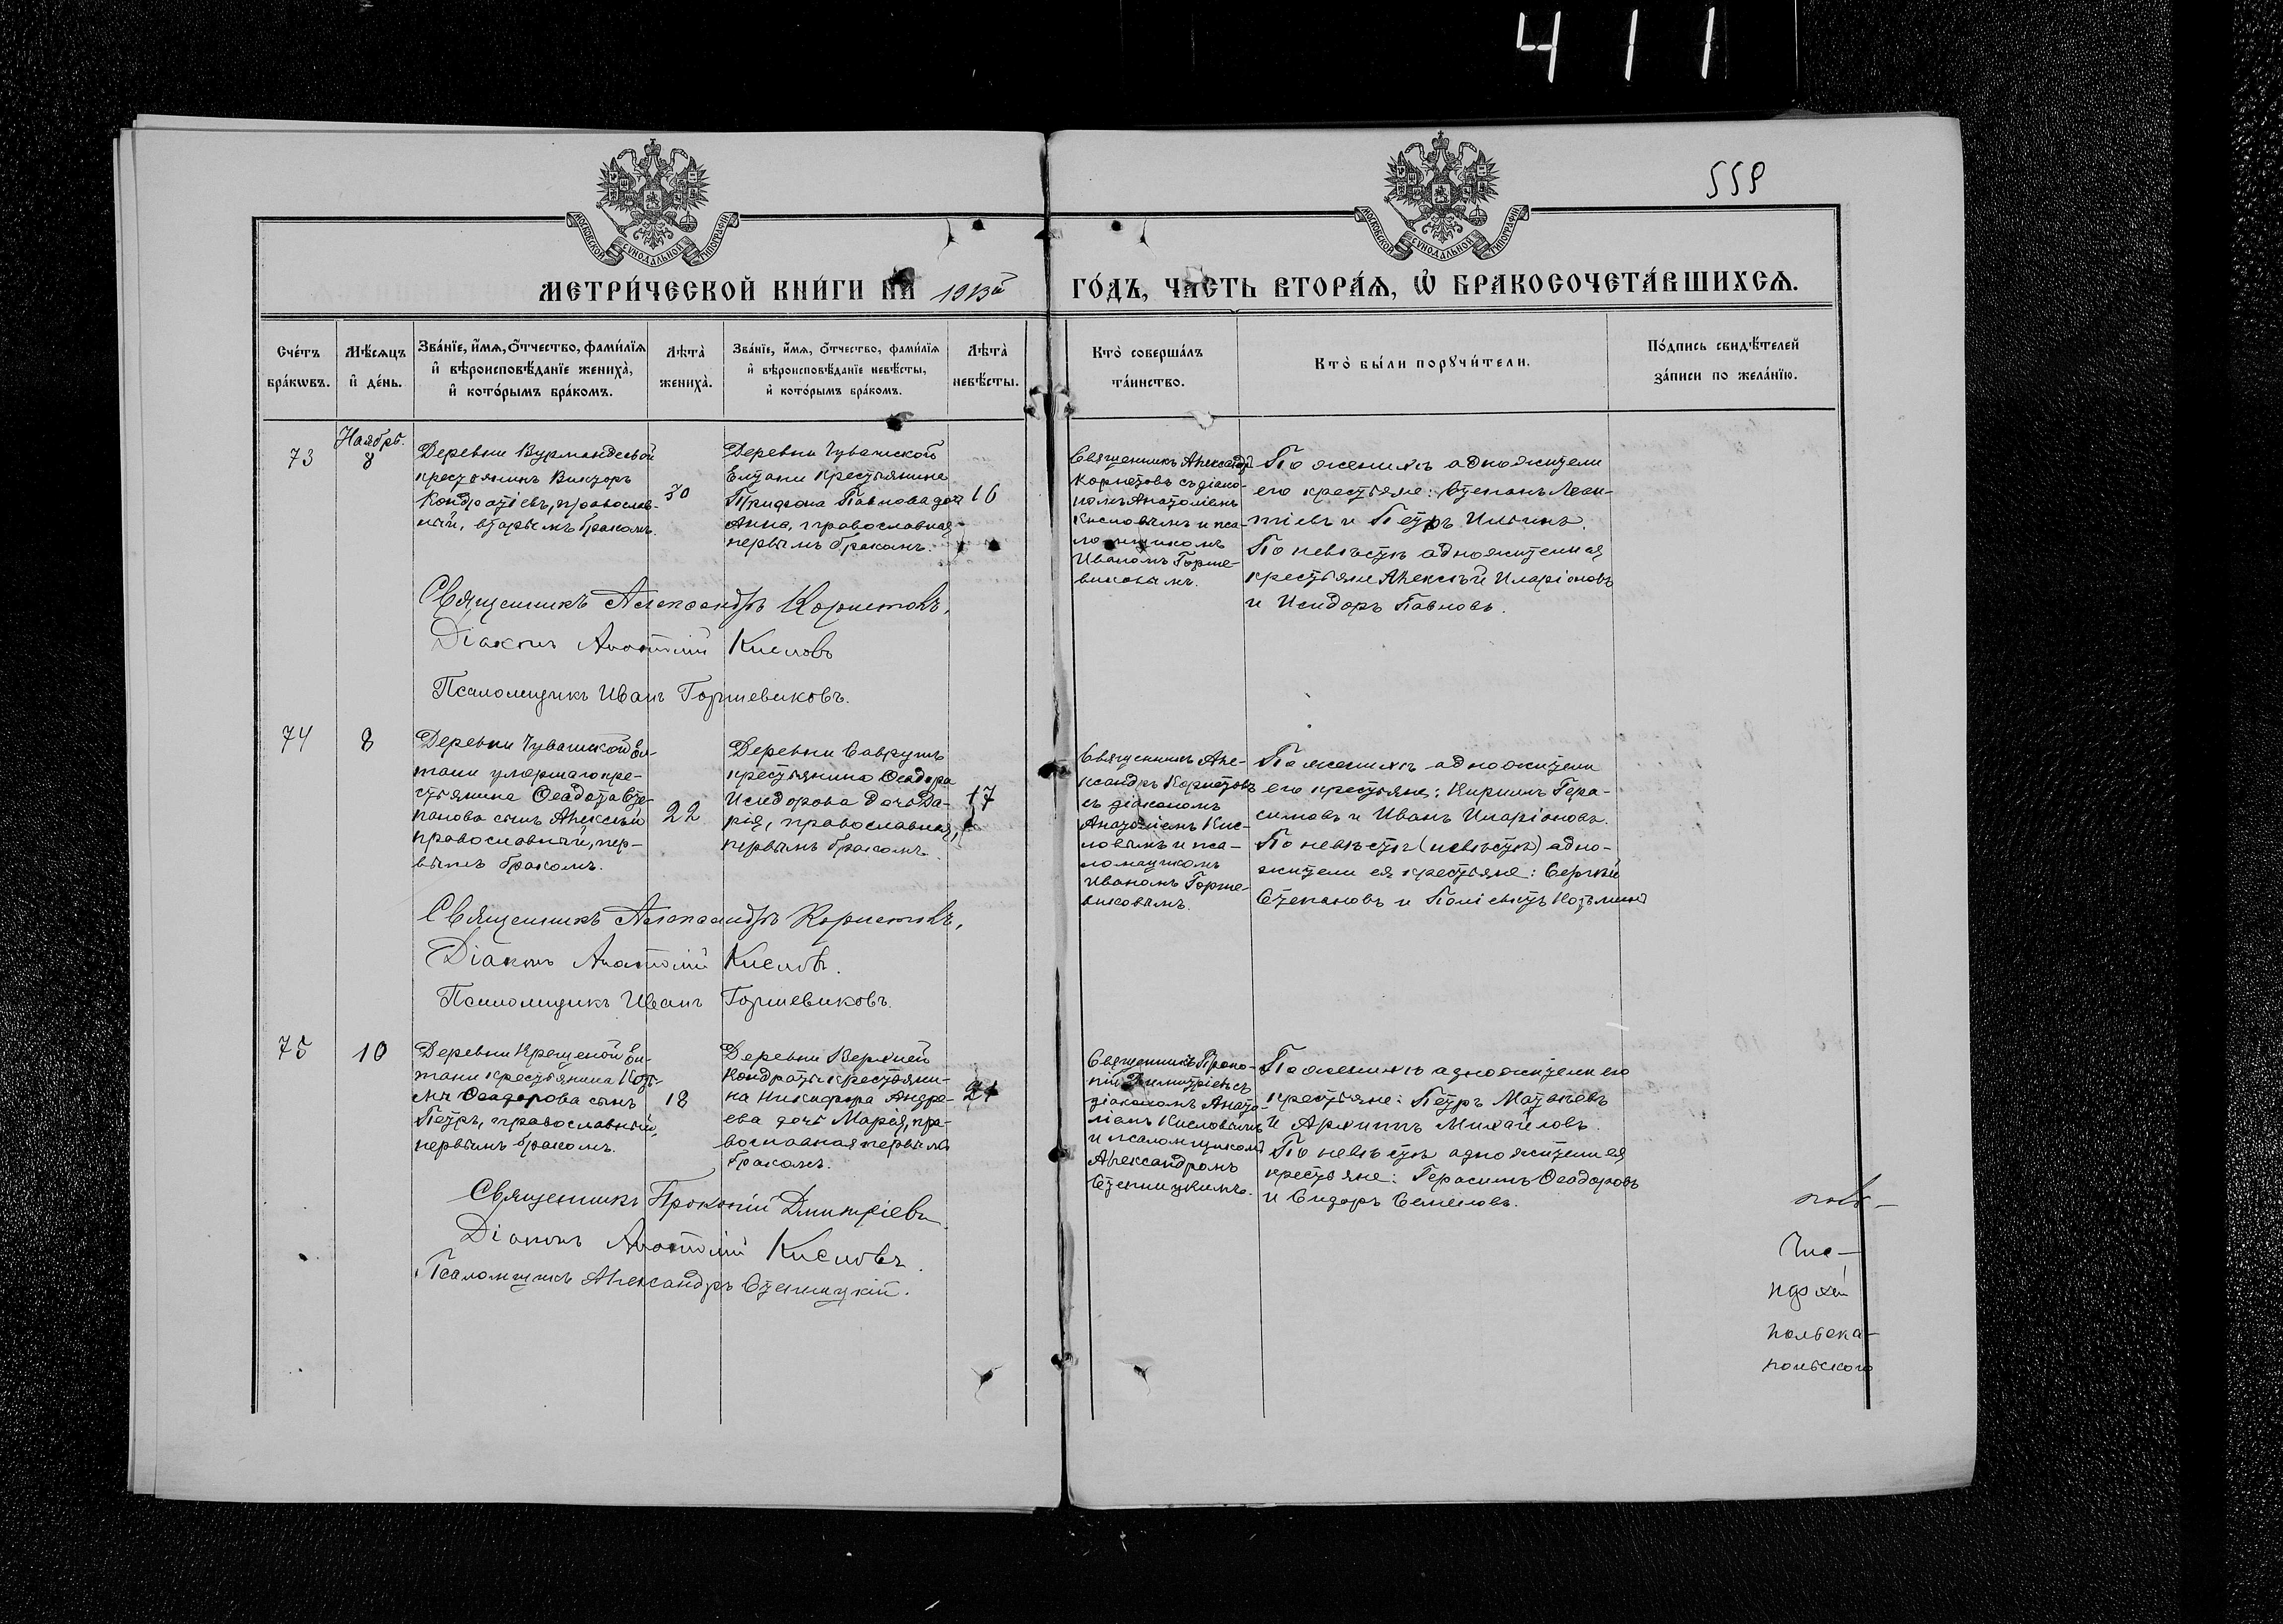 411
559
МОСКОВСКОЙ СѴНОДАЛЬНОЙ ТИПОГРАФІИ
МОСКОВСКОЙ СѴНОДАЛЬНОЙ ТИПОГРАФІИ
МЕТРИ́ЧЕСКОЙ КНИ́ГИ НА 1913й
ГО́ДЪ, ЧА́СТЬ ВТОРА́Я, Ѡ БРАКОСОЧЕТА́ВШИХСЯ.
Сче́тъ
бра́кѡвъ.
Мѣ́сяцъ
и҆ де́нь.
Зва́нїе, и҆́мя, ѻ҆́тчество, фами́лїя
и҆ вѣроисповѣ́данїе жениха̀,
и҆ кото́рымъ бра́комъ.
Лѣта̀
жениха̀.
Зва́нїе, и҆́мя, ѻ҆́тчество, фами́лїя
и҆ вѣроисповѣ́данїе невѣ́сты,
и҆ кото́рымъ бра́комъ.
Лѣта̀
невѣ́сты.
Кто̀ соверша́лъ
та́инство.
Кто̀ бы́ли порꙋчи́тели.
По́дпись свидѣ́телей
за́писи по жела́нїю.
73
Ноябрь.
8
Деревни
крестьянинъ Викторъ
Кондратіевъ, православ-
ный, вторымъ бракомъ.
30
Деревни Чувашской
Елтани крестьянина
Трифона Павлова дочь
Анна, православная
первымъ бракомъ.
16
Священникъ Александръ
Корнетовъ съ діако-
номъ Анатоліемъ
Кисловымъ и пса-
ломщикомъ
Иваномъ Горше-
виковымъ.
По женихѣ одножители
его крестьяне: Степанъ Леон-
тіевъ и Петръ Ильинъ.
По невѣстѣ одножители ея
крестьяне Алексѣй Иларіоновъ
и Исидоръ Павловъ.
Священникъ Александръ Корнетовъ,
Діаконъ Анатолій Кисловъ
Псаломщикъ Иванъ Горшевиковъ.
74
8
Деревни Чувашской Ел-
тани умершаго кре-
стьянина Ѳеодота Сте-
панова сынъ Алексѣй
православный, пер-
вымъ бракомъ.
22
Деревни Саврушъ
крестьянина Ѳеодора
Исидорова дочь Да-
рія, православная,
первымъ бракомъ.
17
Священникъ Але-
ксандръ Корнетовъ
съ діакономъ
Анатоліемъ Кис-
ловымъ и пса-
ломщикомъ
Иваномъ Горше-
виковымъ.
По женихѣ одножители
его крестьяне: Кириллъ Гера-
симовъ и Иванъ Иларіоновъ.
По невѣстѣ (невѣстѣ) одно-
жители ея крестьяне: Сергѣй
Степановъ и Поліевктъ Козьминъ
Священникъ Александръ Корнетовъ,
Діаконъ Анатолій Кисловъ.
Псаломщикъ Иванъ Горшевиковъ.
75
10
Деревни Крещеной Ел-
тани крестьянина Козь-
мы Ѳеодорова сынъ
Петръ, православный,
первымъ бракомъ.
18
Деревни Верхней
Кондраты крестьяни-
на Никифора Андре-
ева дочь Марія, пра-
вославная первымъ
бракомъ.
21
Священникъ Проко-
пій Димитріевъ съ
діакономъ Анато-
ліемъ Кисловымъ
и псаломщикомъ
Александромъ
По женихѣ одножители его
крестьяне: Петръ Матвѣевъ
и Архиппъ Михайловъ.
По невѣстѣ одножители ея
крестьяне: Герасимъ Ѳеодоровъ
и Сидоръ Семеновъ.
Священникъ Прокопій Дмитріевъ
Діаконъ Анатолій Кисловъ.
Псаломщикъ Александръ